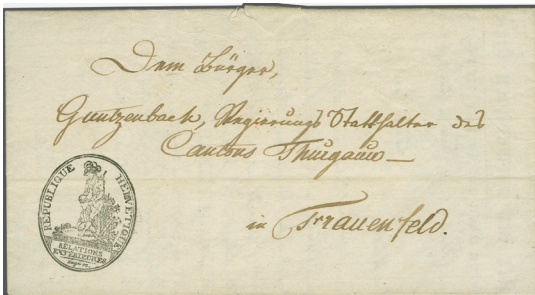 Dem Bürger,
Guntzenbach, Regierungs Statthalter des
Cantons Thurgaüw —
in Frauenfeld.
REPUBLIQUE HELVETIQUE
RELATIONS
EXTERIEURES